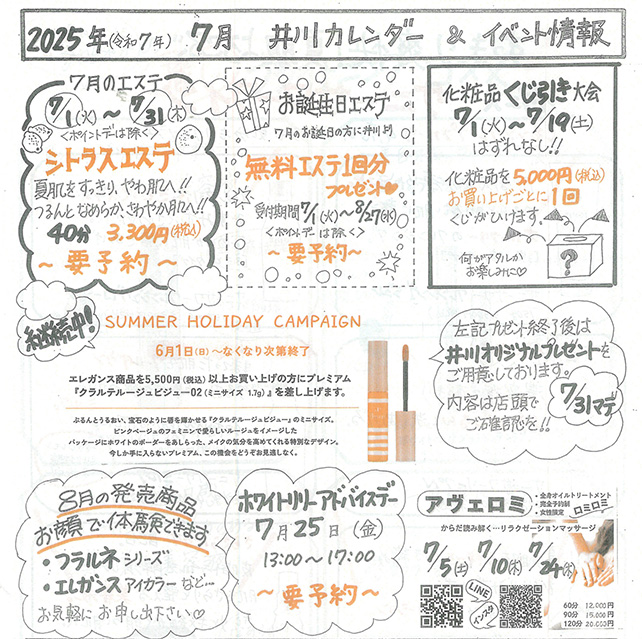 2025年(令和7年) 7月 井川カレンダー & イベント情報
7月のエステ
7/1(火)～7/31(木)
<ポイントデーは除く>
シトラスエステ
夏肌をすっきり、やわ肌へ!!
つるんとなめらか、さわやか肌へ!!
40分 3,300円(税込)
～要予約～
お誕生日エステ
7月のお誕生日の方に井川より
無料エステ1回分
プレゼント♥
受付期間7/1(火)～8/27(水)
<ポイントデーは除く>
～要予約～
化粧品くじ引き大会
7/1(火)～7/19(土)
はずれなし!!
化粧品を5,000円(税込)
お買い上げごとに1回
くじがひけます。
何がアタルか
お楽しみに♡
?
継続中!
SUMMER HOLIDAY CAMPAIGN
6月1日(日)～なくなり次第終了
エレガンス商品を5,500円(税込)以上お買い上げの方にプレミアム
『クラルテルージュビジュー02(ミニサイズ 1.7g)』を差し上げます。
ぷるんとうるおい、宝石のように唇を輝かせる『クラルテルージュビジュー』のミニサイズ。
ピンクベージュのフェミニンで愛らしいルージュをイメージした
パッケージにホワイトのボーダーをあしらった、メイクの気分を高めてくれる特別なデザイン。
今しか手に入らないプレミアム、この機会をどうぞお見逃しなく。
左記プレゼント終了後は
井川オリジナルプレゼントを
ご用意しております。
7/31マデ
内容は店頭で
ご確認を!!
8月の発売商品
お顔で体験できます
・フラルネシリーズ
・エレガンスアイカラーなど…
お気軽にお申し出下さい♡
ホワイトリリーアドバイスデー
7月25日(金)
13:00～17:00
～要予約～
アヴェロミ
・全身オイルトリートメント
・完全予約制
・女性限定
ロミロミ
からだ読み解く…リラクゼーションマッサージ
7/5(土) 7/10(木) 7/24(木)
LINE
インスタ
60分 12,000円
90分 15,000円
120分 20,000円